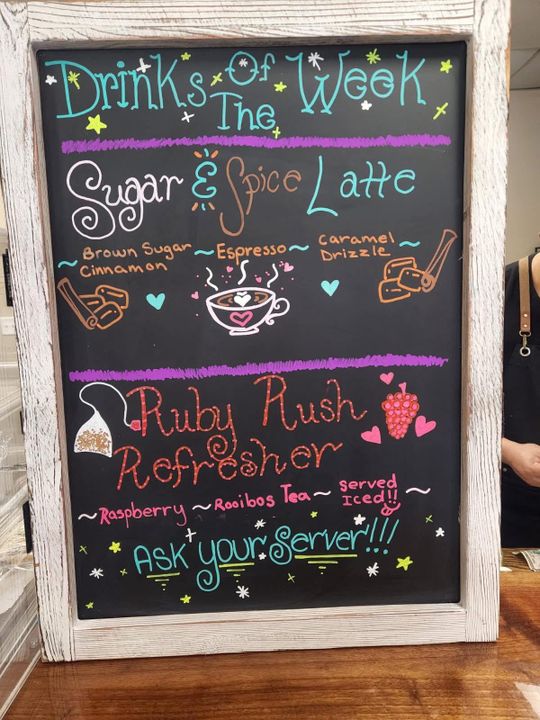 Drinks Of The Week
Sugar & Spice Latte
Brown Sugar Cinnamon ~ Espresso ~ Caramel Drizzle ~
Ruby Rush
Refresher
~Raspberry ~Rooibos Tea~ served Iced!! ~
Ask your Server!!!